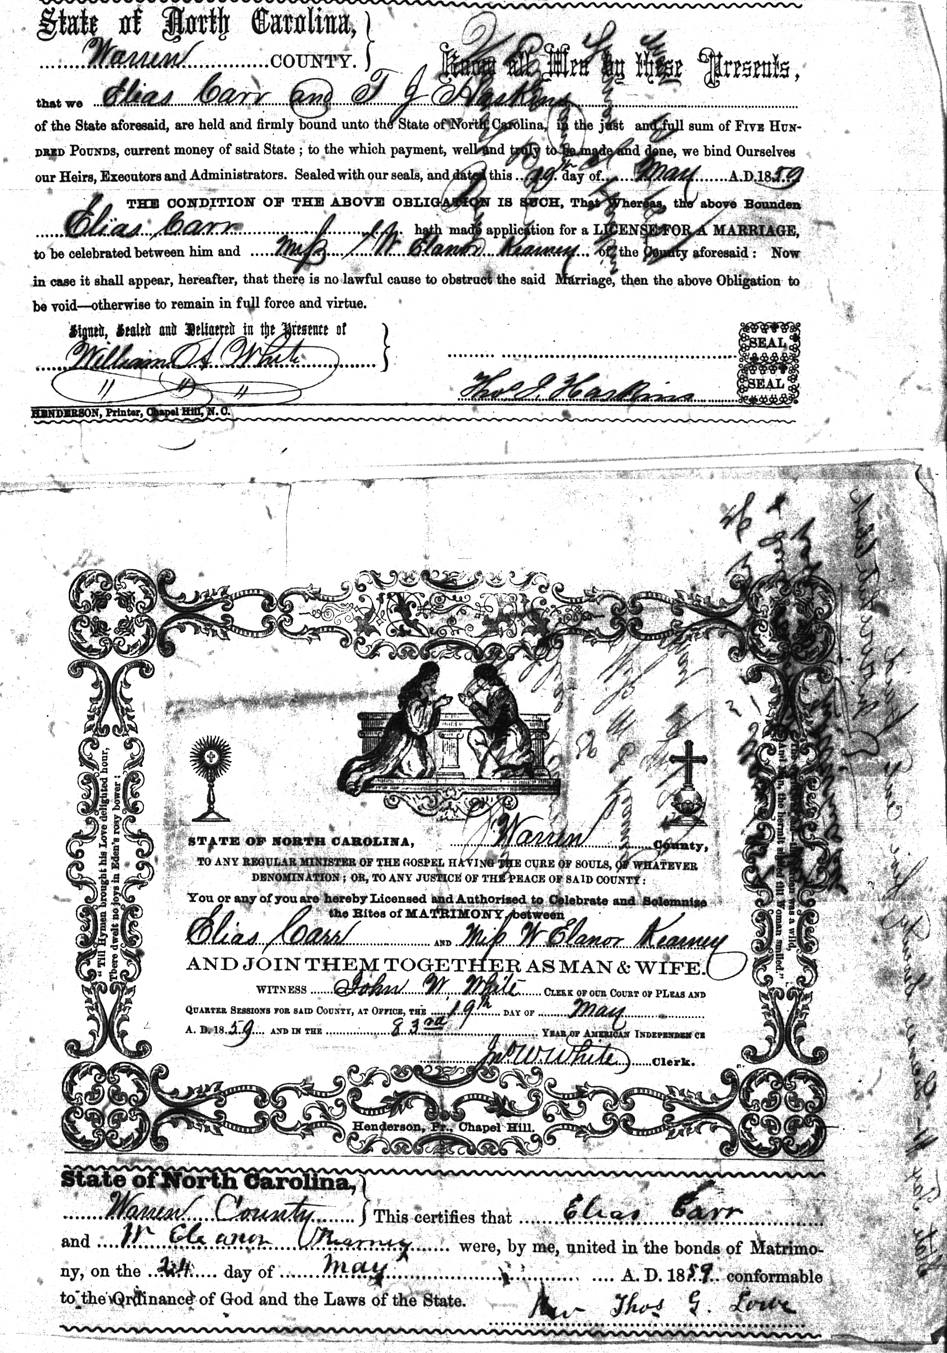 State of North Carolina,
Warren COUNTY. Know all Men by these Presents,
that we Elias Carr and T J Haskins
of the State aforesaid, are held and firmly bound unto the State of North Carolina, in the just and full sum of FIVE HUN-
DRED POUNDS, current money of said State; to the which payment, well and truly to be made and done, we bind Ourselves
our Heirs, Executors and Administrators. Sealed with our seals, and dated this 19th day of May A.D. 1859
THE CONDITION OF THE ABOVE OBLIGATION IS SUCH, That Whereas, the above Bounden
Elias Carr hath made application for a LICENSE FOR A MARRIAGE,
to be celebrated between him and Miss W Elanor Kearney of the County aforesaid: Now
in case it shall appear, hereafter, that there is no lawful cause to obstruct the said Marriage, then the above Obligation to
be void—otherwise to remain in full force and virtue.
Signed, Sealed and Delivered in the Presence of
William A. White SEAL
Thos J. Haskins SEAL
HENDERSON, Printer, Chapel Hill, N. C.
"Till Hymen brought his Love delighted hour,
There dwelt no joys in Eden's rosy bower:
STATE OF NORTH CAROLINA, Warren County,
TO ANY REGULAR MINISTER OF THE GOSPEL HAVING THE CURE OF SOULS, OF WHATEVER
DENOMINATION; OR, TO ANY JUSTICE OF THE PEACE OF SAID COUNTY:
You or any of you are hereby Licensed and Authorized to Celebrate and Solemnise
the Rites of MATRIMONY, between
Elias Carr AND Miss W Elanor Kearney
AND JOIN THEM TOGETHER AS MAN & WIFE.
WITNESS John W White CLERK OF OUR COURT OF PLEAS AND
QUARTER SESSIONS FOR SAID COUNTY, AT OFFICE, THE 19th DAY OF May
A. D. 1859 AND IN THE 83rd YEAR OF AMERICAN INDEPENDENCE
Jno W White Clerk.
was a wild,
And man, the hermit sighed till Woman smiled."
Henderson, Pr., Chapel Hill.
State of North Carolina,
Warren County This certifies that Elias Carr
and W Eleanor Kearney were, by me, united in the bonds of Matrimo-
ny, on the 24 day of May A. D. 1859 conformable
to the Ordinance of God and the Laws of the State.
Rev Thos G. Lowe